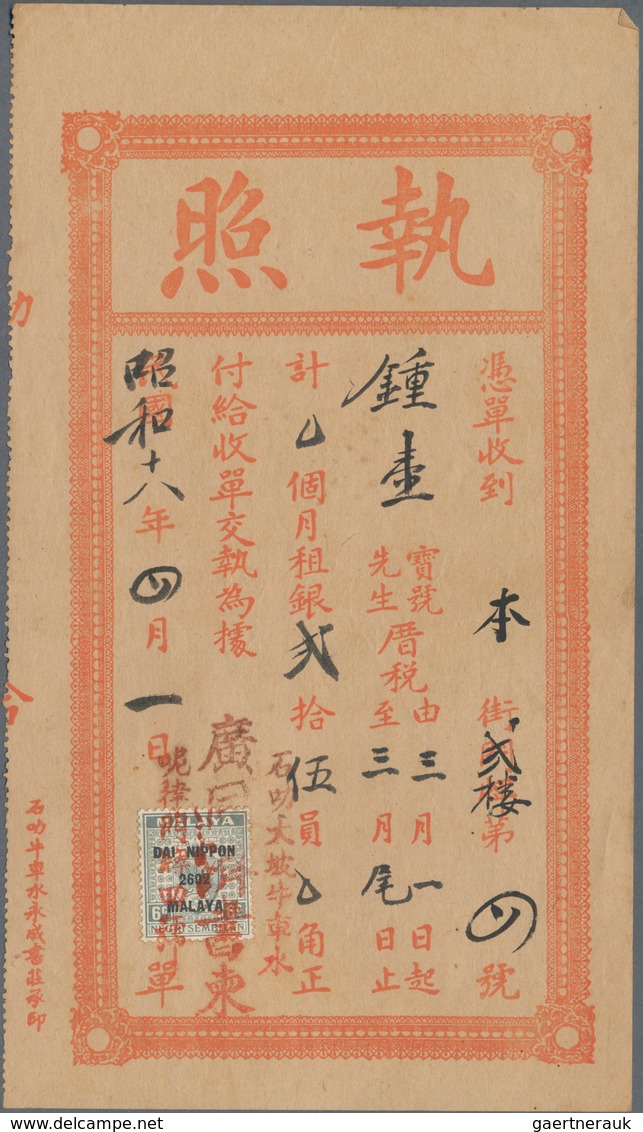 執照
憑單收到 本 街門弍楼第 四 號
鍾壹 寶號 先生 厝税由三月一日起 至三月尾日止
計 個月租銀弍拾伍員 角正
付給收單交執為據
昭和十八年四月一日 單
石叻大坡牛車水
廣 書柬
呢律門牌四
MALAYA
DAI NIPPON
2602
MALAYA
6c 6c
NEGRI SEMBILAN
石叻牛車水永成書莊承印
delcampe.net
gaertnerauk